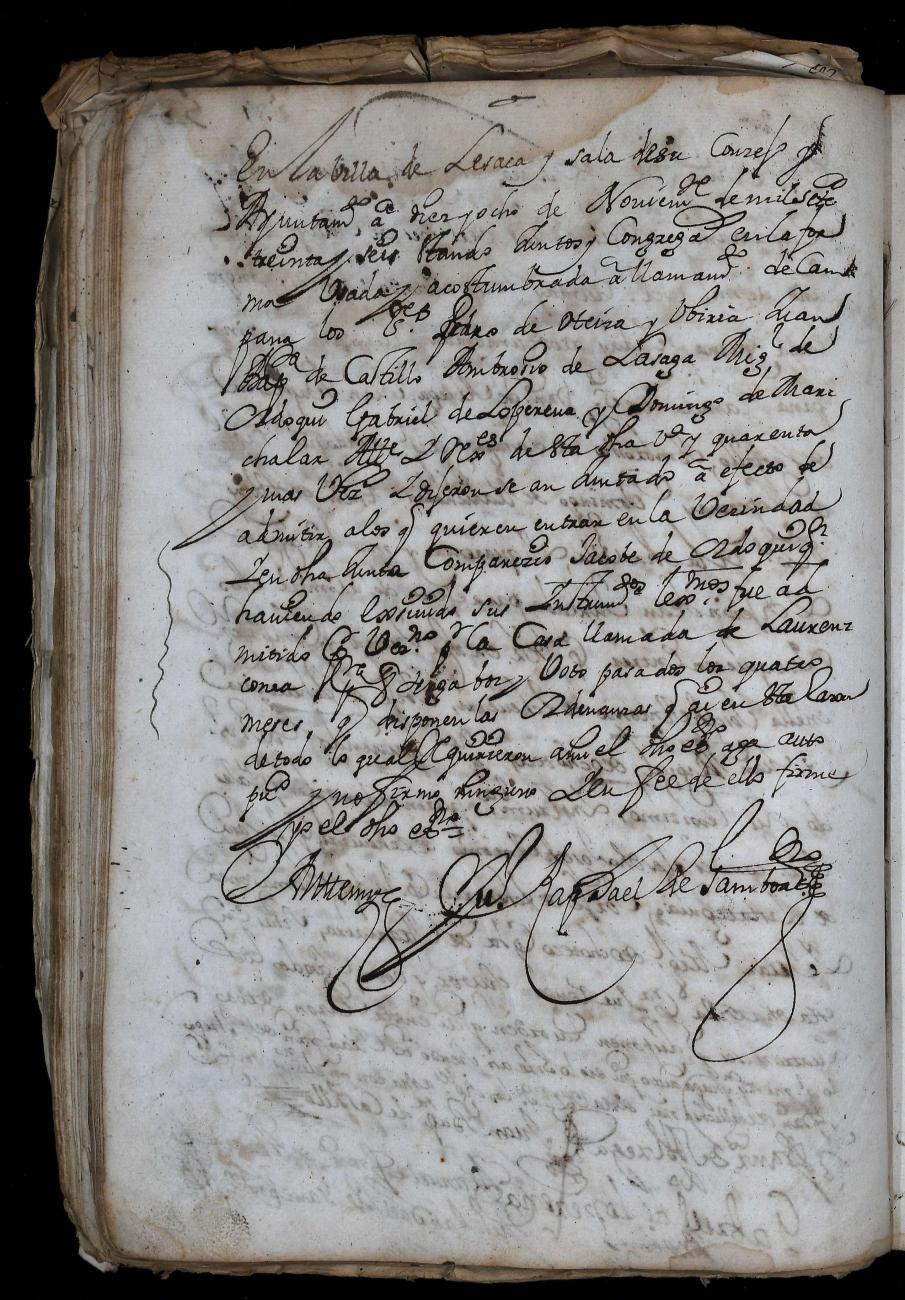 En la Villa de Lesaca y sala desu Conzejo y
Ayuntam.to a diez y ocho de Noviem.re de mil sete
treinta y seis stando Juntos y Congregad en la for
ma Usada y acostumbrada a llamam.to de Cam
pana los S.res Pedro de Oteiza y Ubiria Juan
Bap.ta de Castillo Ambrosio de Lasaga Mig.l de
Ordoqui Gabriel de Loperena y Domingo de Mari
chalar Alc.e y Rex.es de sta dha V.a y quarenta
y mas Vez.s y dijeron se an Juntado a efecto de
admitir alos q quieren entrar en la Vecindad
y en dha Junta Comparezio Jacobe de Ordoqui q.n
haviendo exsivido sus Instrum.tos lex.mos fue ad
mitido Por Vez.no p.r la Casa llamada de Laurenz
conea p.a q tenga boz y Voto pasados los quatro
meses q disponen las Ordenanzas q ai en sta razon
de todo lo qual Requirieron ami el dho es.no aga auto
pu.co y no firmo ninguno y en fee de ello firme
yo el dho es.no
Anttemi Raphael de Samboa es.no